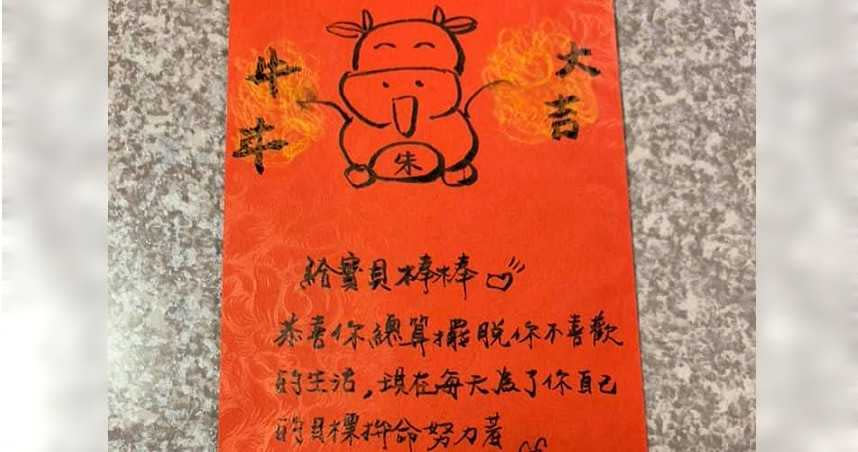 牛年
大吉
朱
給寶貝棒棒
恭喜你總算擺脫你不喜歡
的生活，現在每天為了你自己
的目標拚命努力著